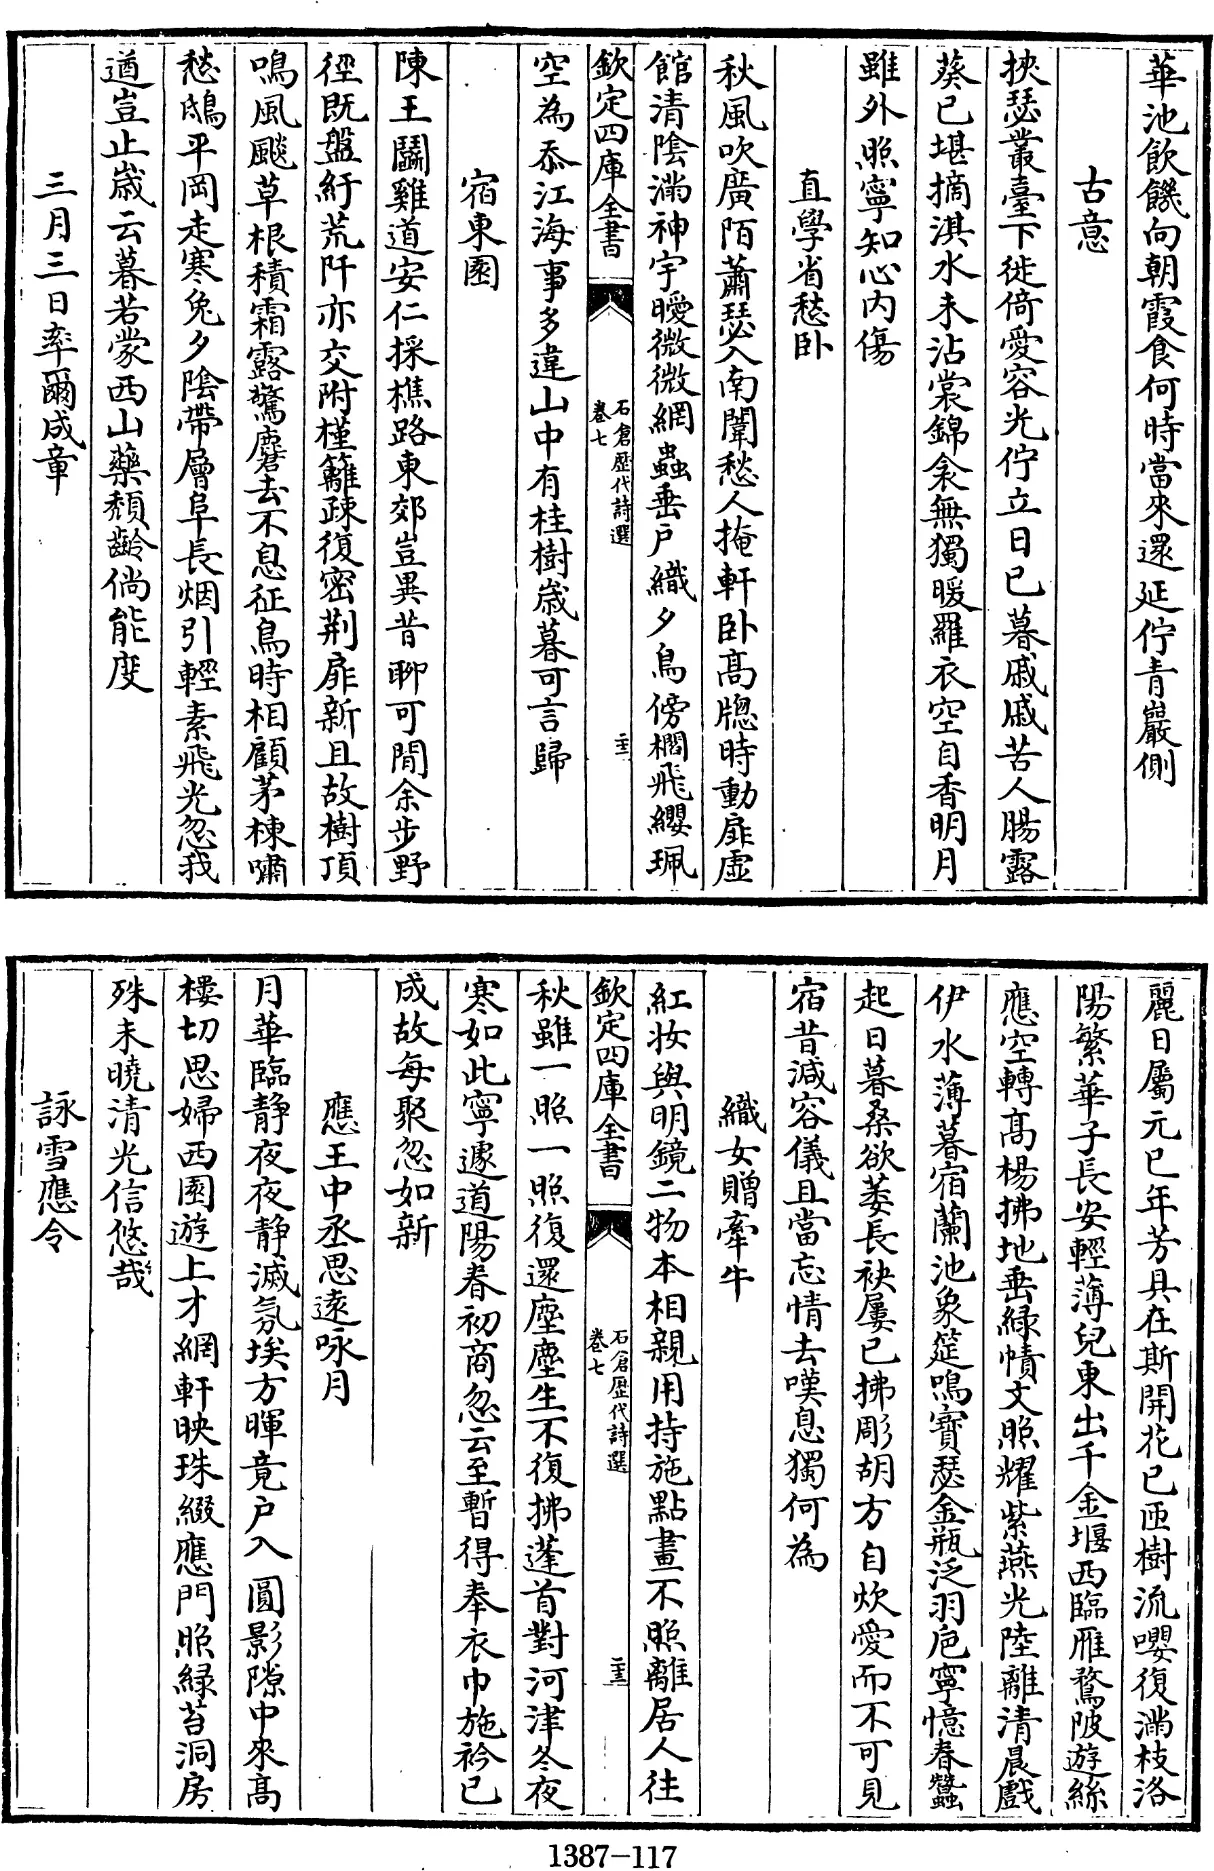 華池飲饑向朝霞食何時當來還延佇青巖側
古意
挾瑟叢臺下徙倚愛容光佇立日已暮戚戚苦人腸露
葵已堪摘淇水未沾裳錦衾無獨暖羅衣空自香明月
雖外照寧知心内傷
直學省愁卧
秋風吹廣陌蕭瑟入南闈愁人掩軒卧高牕時動扉虚
館清隂滿神宇曖微微網蟲垂户織夕鳥傍櫩飛纓珮
欽定四庫全書
石倉歷代詩選
卷七
二十二
空為忝江海事多違山中有桂樹歳暮可言歸
宿東園
陳王鬭雞道安仁採樵路東郊豈異昔聊可閒余步野
徑既盤紆荒阡亦交附槿籬疎復密荆扉新且故樹頂
鳴風飈草根積霜露驚麏去不息征鳥時相顧茅棟嘯
愁鴟平岡走寒兔夕隂帶層阜長烟引輕素飛光忽我
遒豈止歳云暮若蒙西山藥頽齡倘能度
三月三日率爾成章
麗日屬元巳年芳具在斯開花已匝樹流嚶復滿枝洛
陽繁華子長安輕薄兒東出千金堰西臨雁鶩陂遊絲
應空轉高楊拂地垂緑幘文照耀紫燕光陸離清晨戲
伊水薄暮宿蘭池象筵鳴寳瑟金瓶泛羽巵寧憶春蠶
起日暮桑欲萎長袂屢已拂彫胡方自炊愛而不可見
宿昔減容儀且當忘情去嘆息獨何為
織女贈牽牛
紅妝與明鏡二物本相親用持施點畫不照離居人往
欽定四庫全書
石倉歷代詩選
卷七
二十三
秋雖一照一照復還塵塵生不復拂蓬首對河津冬夜
寒如此寧遽道陽春初商忽云至暫得奉衣巾施衿已
成故每聚忽如新
應王中丞思逺咏月
月華臨静夜夜静滅氛埃方暉竟户入圓影隙中來高
樓切思婦西園遊上才網軒映珠綴應門照緑苔洞房
殊未曉清光信悠哉
詠雪應令
1387-117